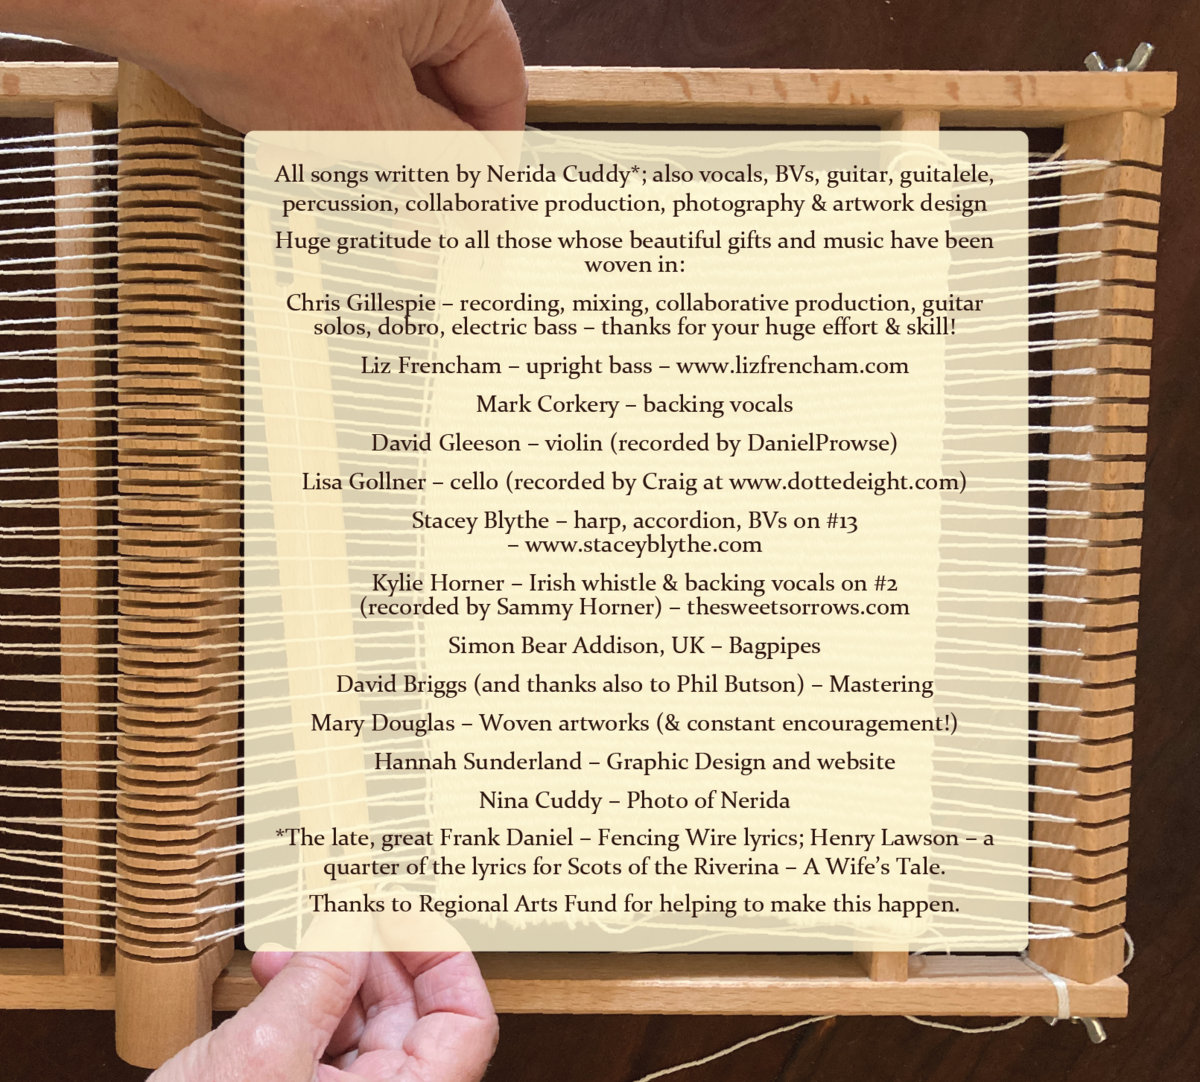 All songs written by Nerida Cuddy*; also vocals, BVs, guitar, guitalele,
percussion, collaborative production, photography & artwork design
Huge gratitude to all those whose beautiful gifts and music have been
woven in:
Chris Gillespie – recording, mixing, collaborative production, guitar
solos, dobro, electric bass – thanks for your huge effort & skill!
Liz Frencham – upright bass – www.lizfrencham.com
Mark Corkery – backing vocals
David Gleeson – violin (recorded by DanielProwse)
Lisa Gollner – cello (recorded by Craig at www.dottedeight.com)
Stacey Blythe – harp, accordion, BVs on #13
– www.staceyblythe.com
Kylie Horner – Irish whistle & backing vocals on #2
(recorded by Sammy Horner) – thesweetsorrows.com
Simon Bear Addison, UK – Bagpipes
David Briggs (and thanks also to Phil Butson) – Mastering
Mary Douglas – Woven artworks (& constant encouragement!)
Hannah Sunderland – Graphic Design and website
Nina Cuddy – Photo of Nerida
*The late, great Frank Daniel – Fencing Wire lyrics; Henry Lawson – a
quarter of the lyrics for Scots of the Riverina – A Wife’s Tale.
Thanks to Regional Arts Fund for helping to make this happen.